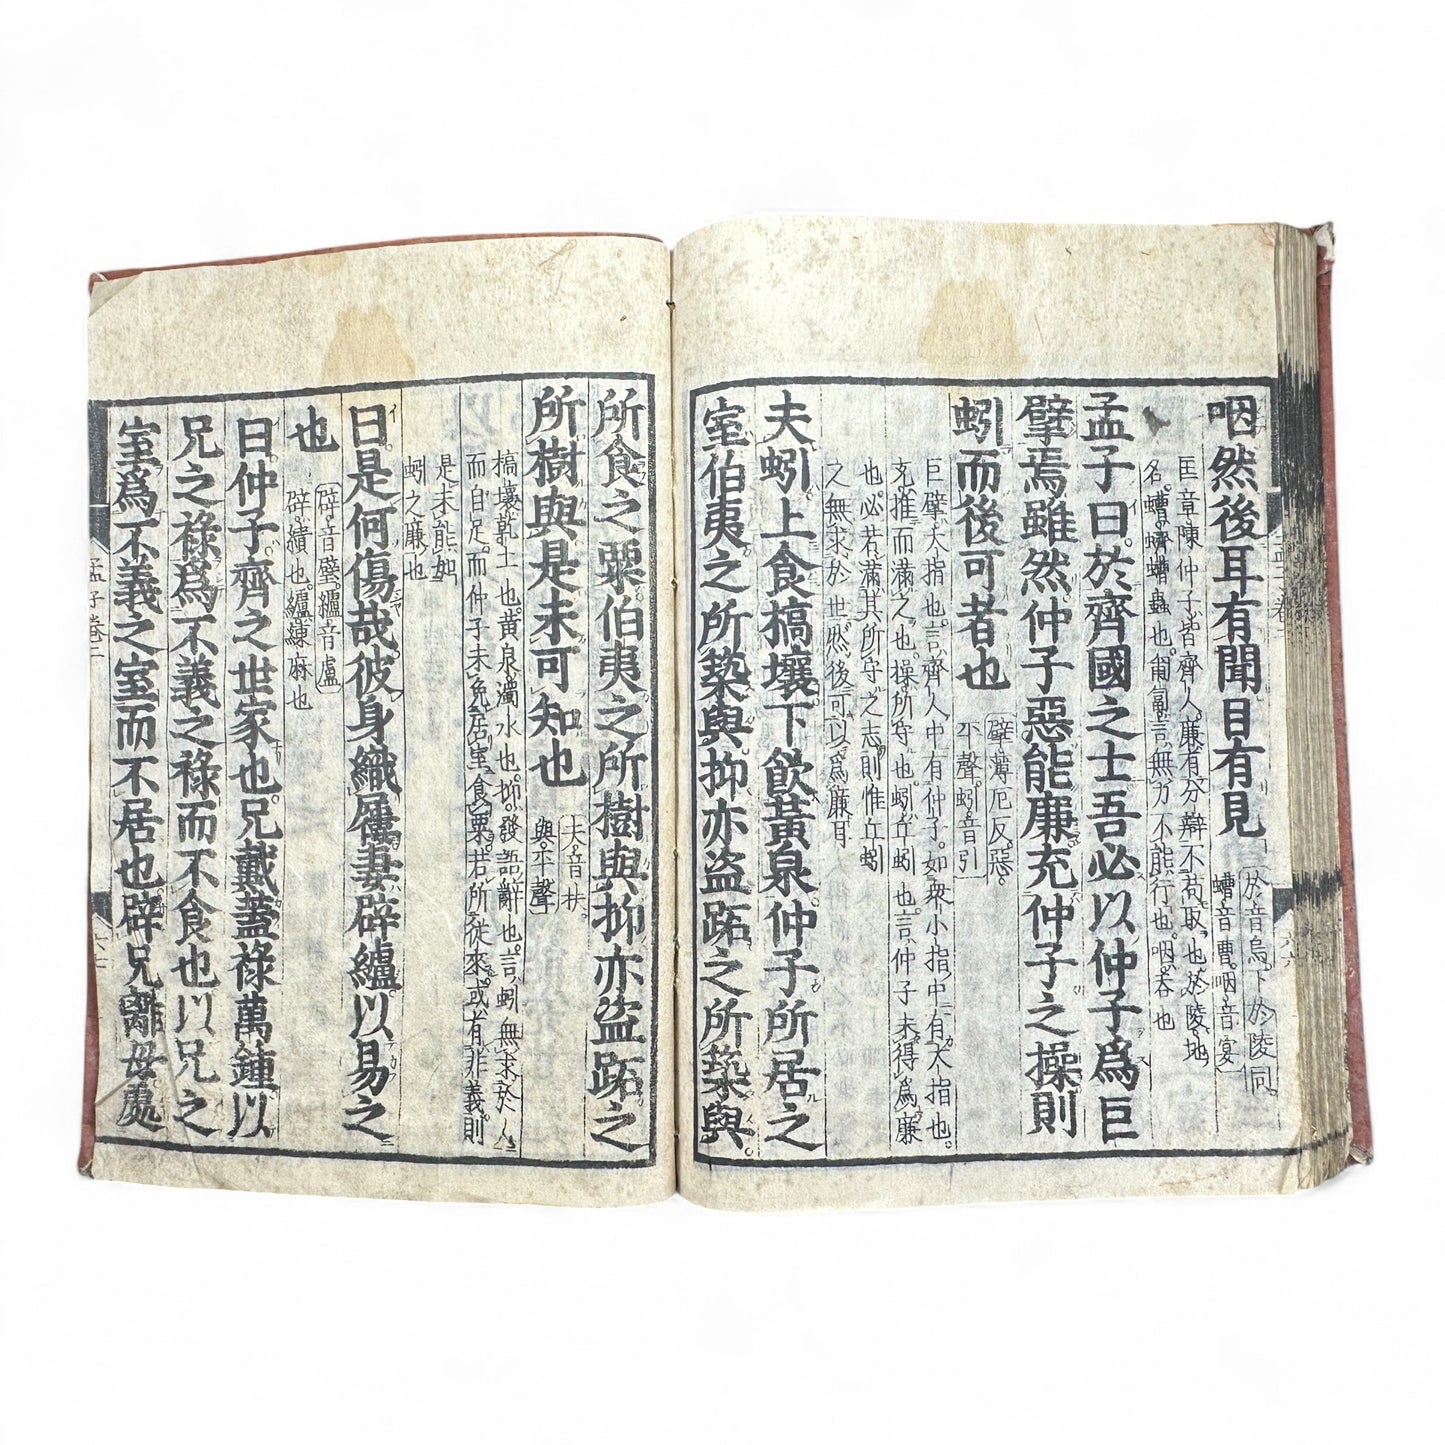 咽然後耳有聞目有見
於音烏下於陵同
螬音曹咽音宴
匡章陳仲子皆齊人廉有分辯不苟取也於陵地
名螬蠐螬蟲也匍匐言無力不能行也咽吞也
孟子曰於齊國之士吾必以仲子爲巨
擘焉雖然仲子惡能廉充仲子之操則
蚓而後可者也
擘薄厄反惡
平聲蚓音引
巨擘大指也言齊人中有仲子如衆小指中有大指也
充推而滿之也操所守也蚓丘蚓也言仲子未得爲廉
也必若滿其所守之志則惟丘蚓
之無求於世然後可以爲廉耳
夫蚓上食槁壤下飲黃泉仲子所居之
室伯夷之所築與抑亦盜跖之所築與
所食之粟伯夷之所樹與抑亦盜跖之
所樹與是未可知也
夫音扶
與平聲
槁壤乾土也黃泉濁水也抑發語辭也言蚓無求於人
而自足而仲子未免居室食粟若所從來或有非義則
是未能如
蚓之廉也
曰是何傷哉彼身織屨妻辟纑以易之
也
辟音壁纑音盧
辟績也纑練麻也
曰仲子齊之世家也兄戴蓋祿萬鍾以
兄之祿爲不義之祿而不食也以兄之
室爲不義之室而不居也辟兄離母處
孟子卷三